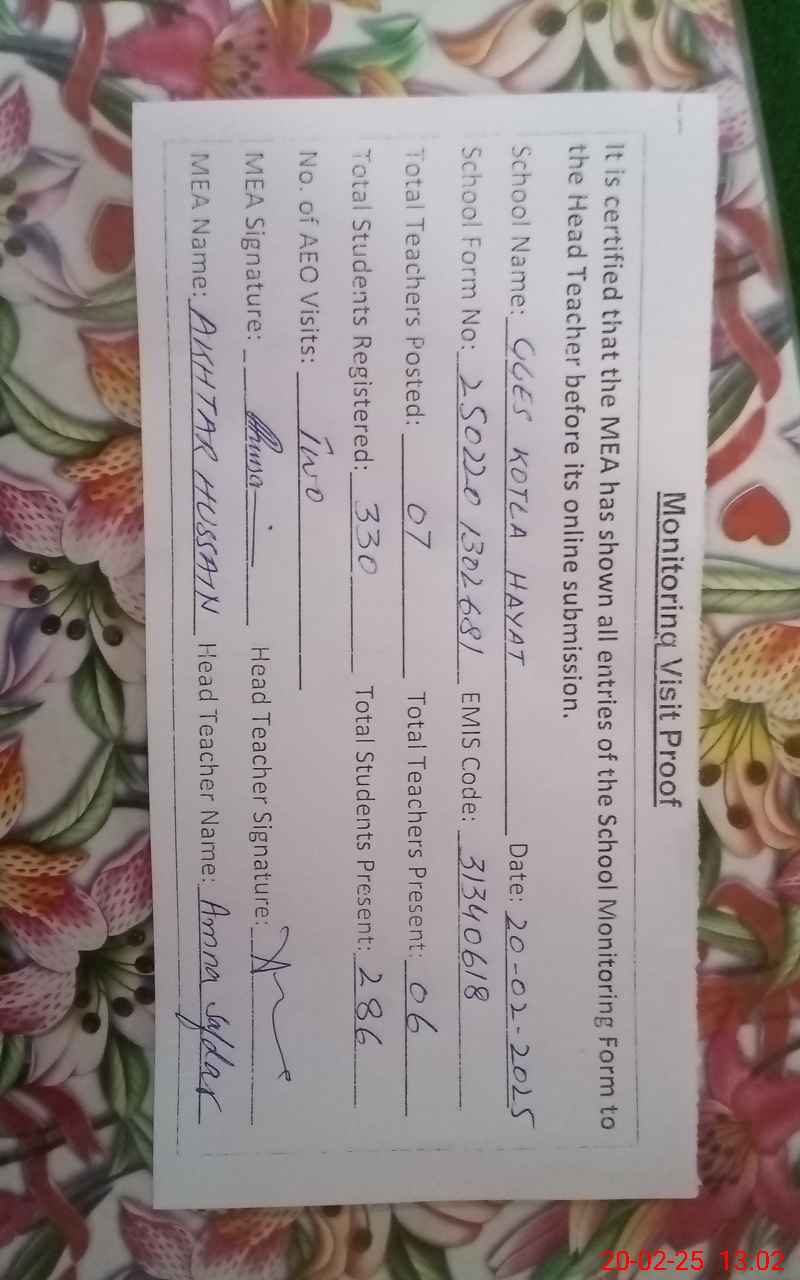 Monitoring Visit Proof
It is certified that the MEA has shown all entries of the School Monitoring Form to
the Head Teacher before its online submission.
School Name: GGES KOTLA HAYAT Date: 20-02-2025
School Form No: 250220 1302681 EMIS Code: 31340618
Total Teachers Posted: 07 Total Teachers Present: 06
Total Students Registered: 330 Total Students Present: 286
No. of AEO Visits: Two
MEA Signature: Head Teacher Signature:
MEA Name: AKHTAR HUSSAIN Head Teacher Name: Amna Safdar
20-02-25 13:02